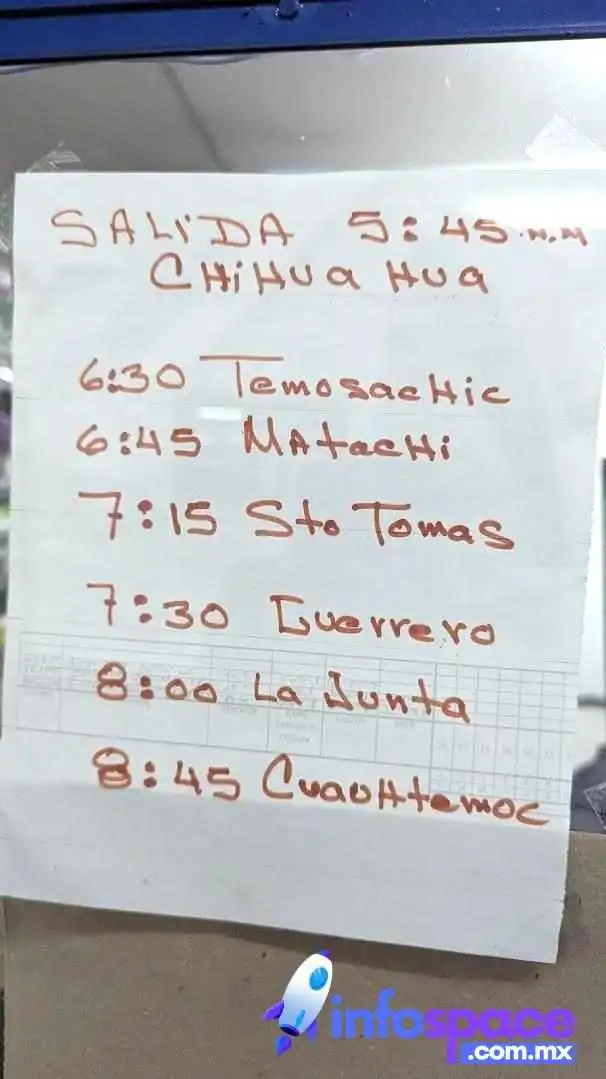 SALIDA 5:45 A.M
CHiHUaHUa
6:30 TemosacHic
6:45 MAtacHi
7:15 Sto Tomas
7:30 Guerrero
8:00 La Junta
8:45 CuauHtemoc
infospace
.com.mx